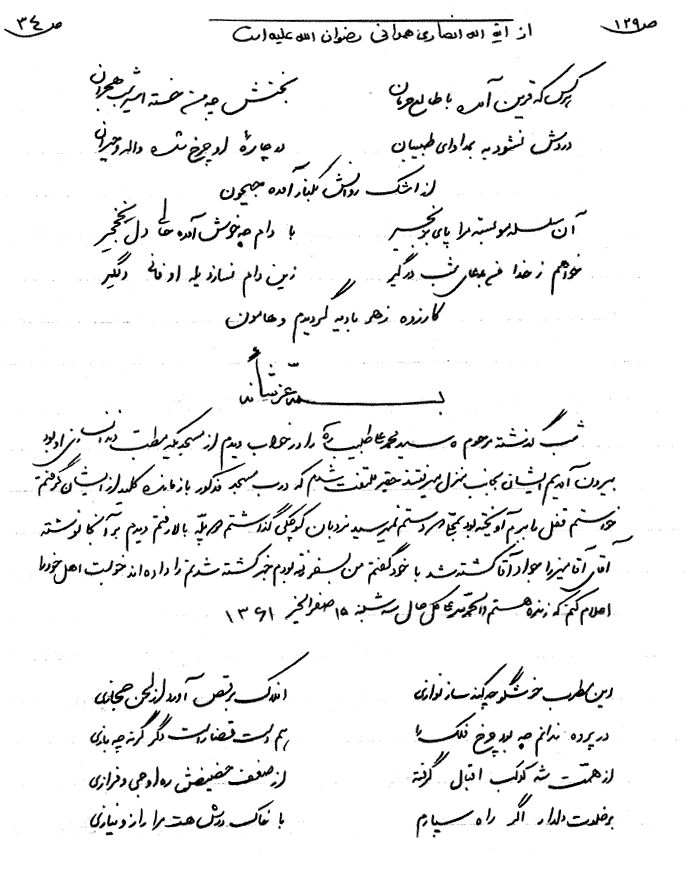 ص ١٢٩ ص ٣٤
از آية الله انصاری همدانی رضوان الله علیه است
هرکس که قرین آمده با طالع حرمان بخشش چه من خسته اسیر شب هجران
دردش نشود به بمداوای طبیبان در چارۀ او چرخ شده واله و حیران
از اشک روانش گلنار آمده جیحون
آن سلسله مو بسته مرا پای بزنجیر با دام چه خوش آمده حال دل نخجیر
خواهم ز خدا شب درگیر زین دام نسازد یله او فانی دلگیر
کارزده زهر بادیه گردیدم و هامون
بسمه عز شأنه
شب گذشته مرحوم سید محمد علی طیب ره را در خواب دیدم از مسجدیکه او بود
بیرون آمدیم ایشان بجانب منزل میرفتند حقیر ملتفت شدم که درب مسجد مذکور باز مانده کلید از ایشان گرفتم
خواستم قفل را بدرم آویخته بود دستم نمیرسید نردبان کوچکی گذاشتم هر پله بالا رفتم دیدم بر آنجا نوشته
آقای آقا میرزا جواد آقا کشته شد با خود گفتم من بسفر رفته بودم خبر کشته شدنم را داده اند خواست اهل خود را
اعلام کنم که زنده هستم والحمد لله علی کل حال سه شنبه ۱۵ صفر الخیر ۱۳۶۱
این مطرب خوشگو چه کند ساز نوازی افلاک برقص آورد از لحن حجازی
در پرده ندانم چه بود چرخ فلک را دست قضا راست دگر گونه چه بازی
از همت شه کوکب اقبال گرفته از ضعف حضیضش ره اوجی و فرازی
بر خلوت دلدار اگر راه سپارم با خاک درش هست مرا راز و نیازی